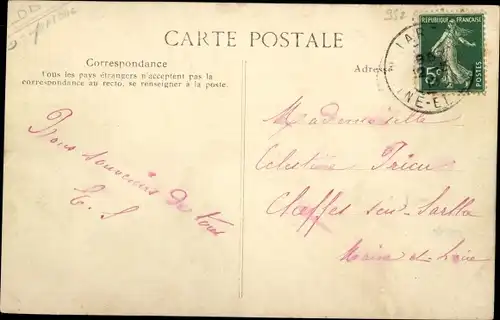 952
CARTE POSTALE
RÉPUBLIQUE FRANÇAISE
Correspondance
Adres
5c
POSTES
Tous les pays étrangers n'acceptent pas la
correspondance au recto, se renseigner à la poste.
INE-ET
Mademoiselle
Bons souvenirs de tous
Célestine
E. S
Maine et Loire